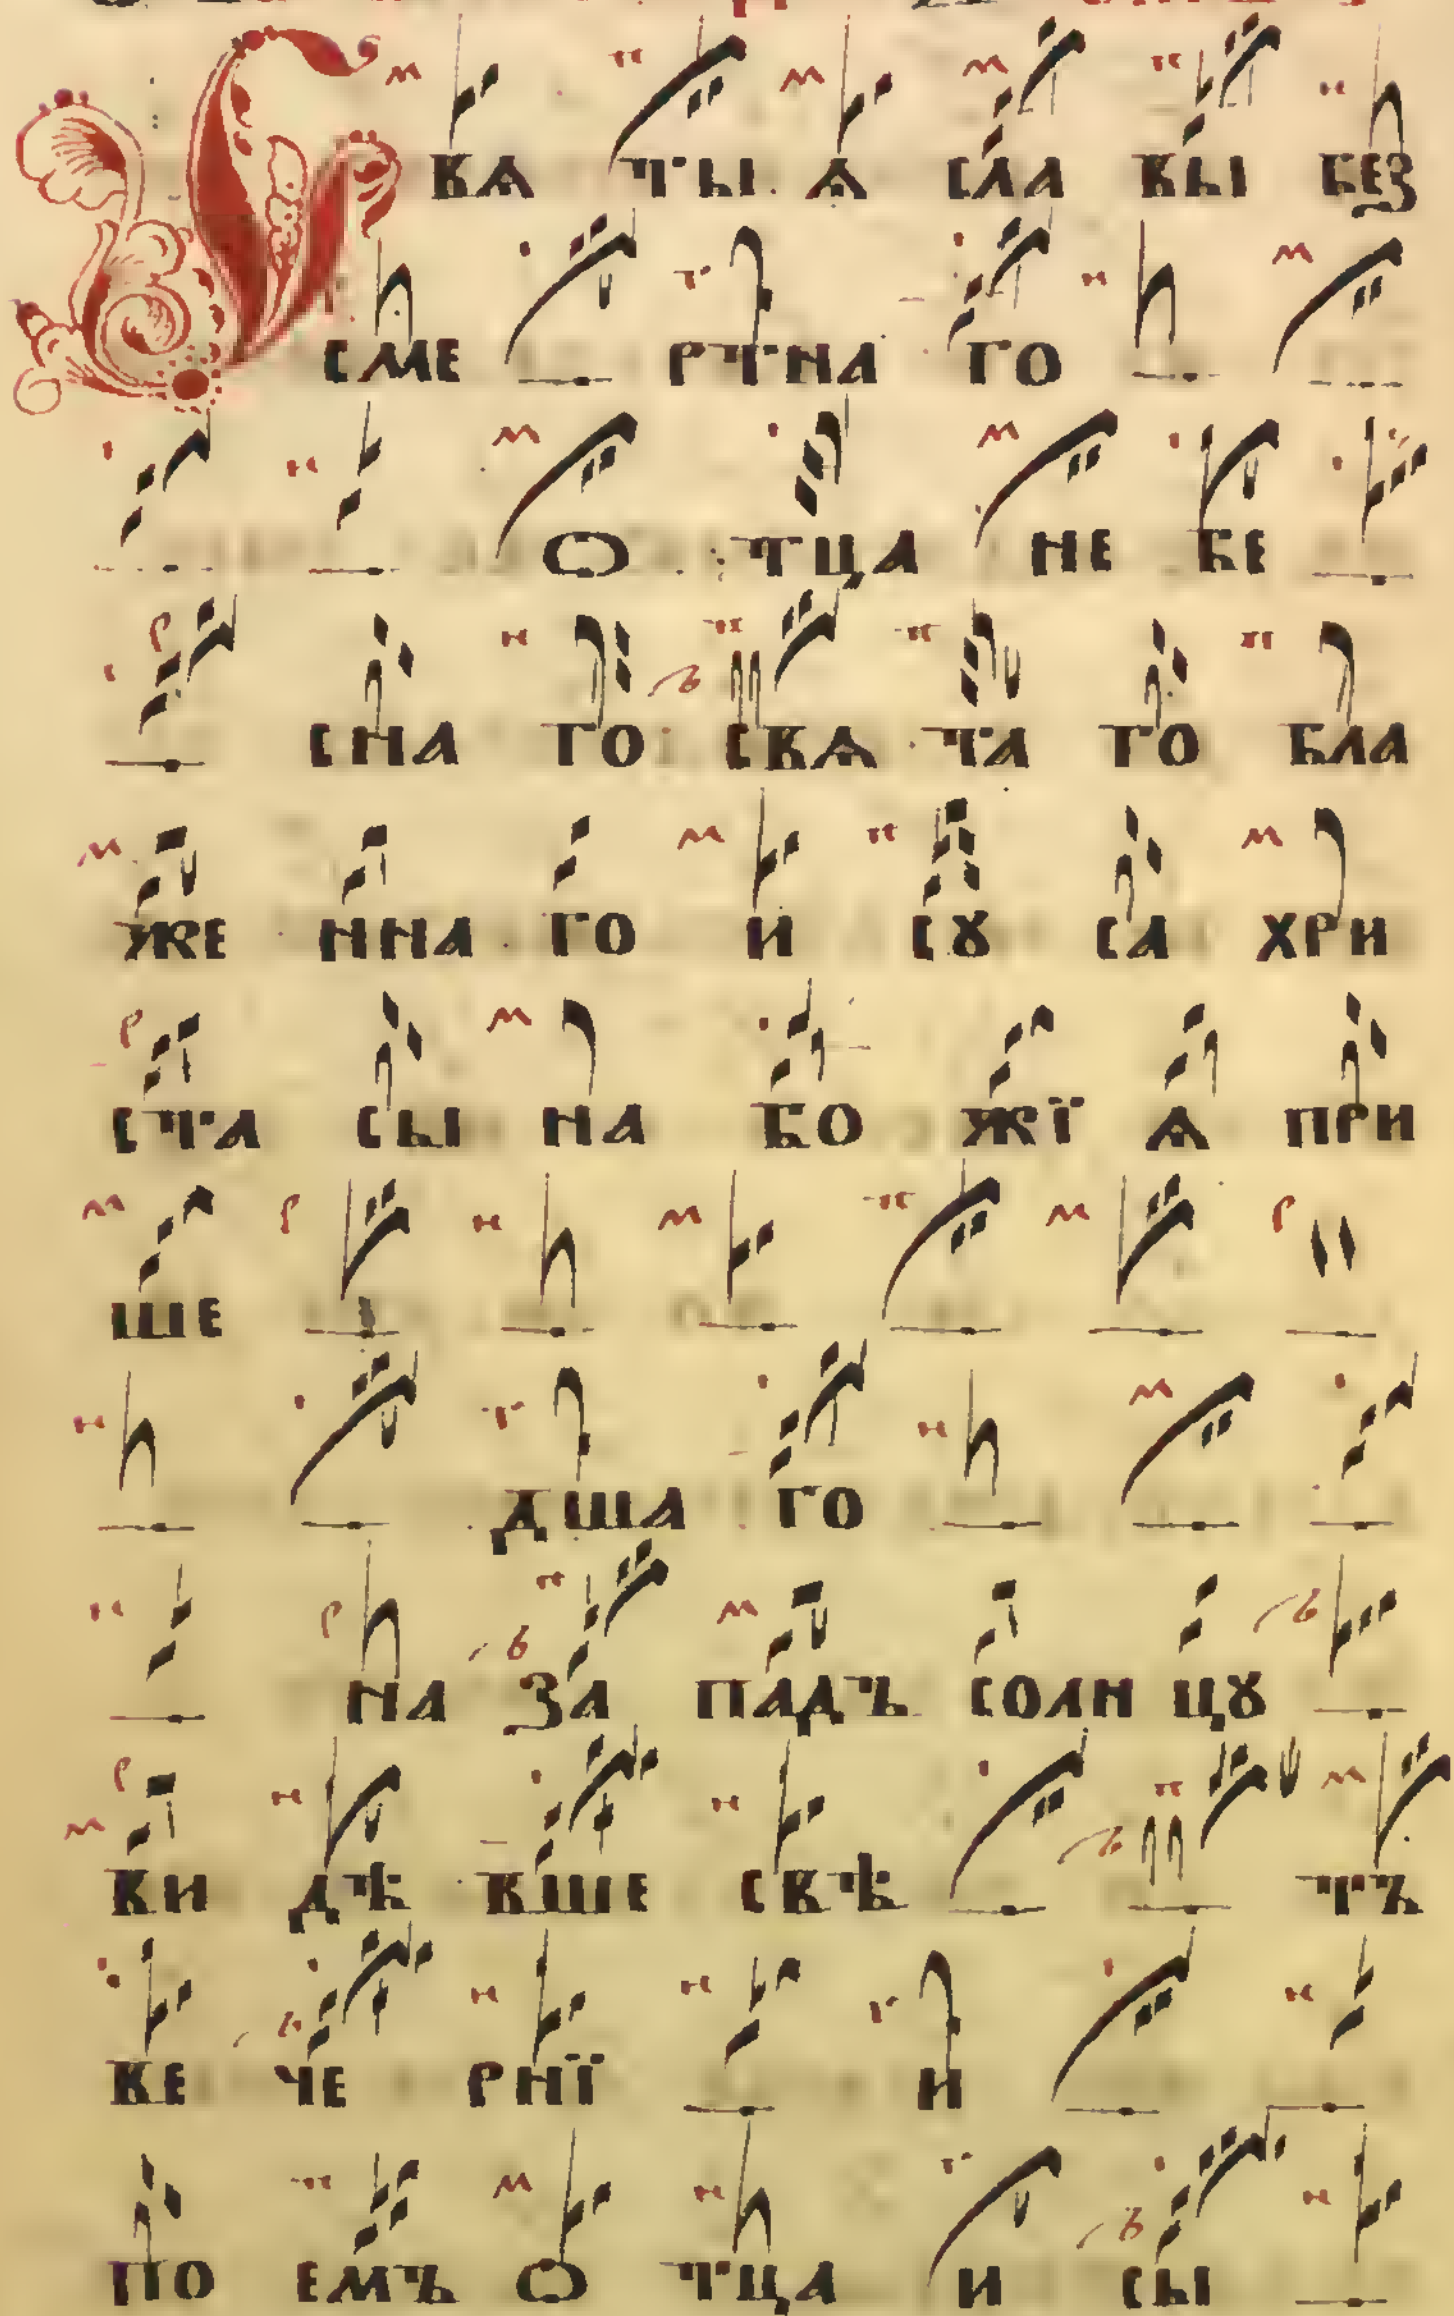 СВѦ ТЫ Ѧ СЛА ВЫ БЕЗ
СМЕ РТНА ГО
О ТЦА НЕ БЕ
СНА ГО СВѦ ТА ГО БЛА
ЖЕ ННА ГО И СꙊ СА ХРИ
СТА СЫ НА БО ЖЇ Ѧ ПРИ
ШЕ
ДША ГО
НА ЗА ПАДЪ СОЛН ЦꙊ
ВИ ДѢ ВШЕ СВѢ ТЪ
ВЕ ЧЕ РНЇ И
ПО ЕМЪ О ТЦА И СЫ